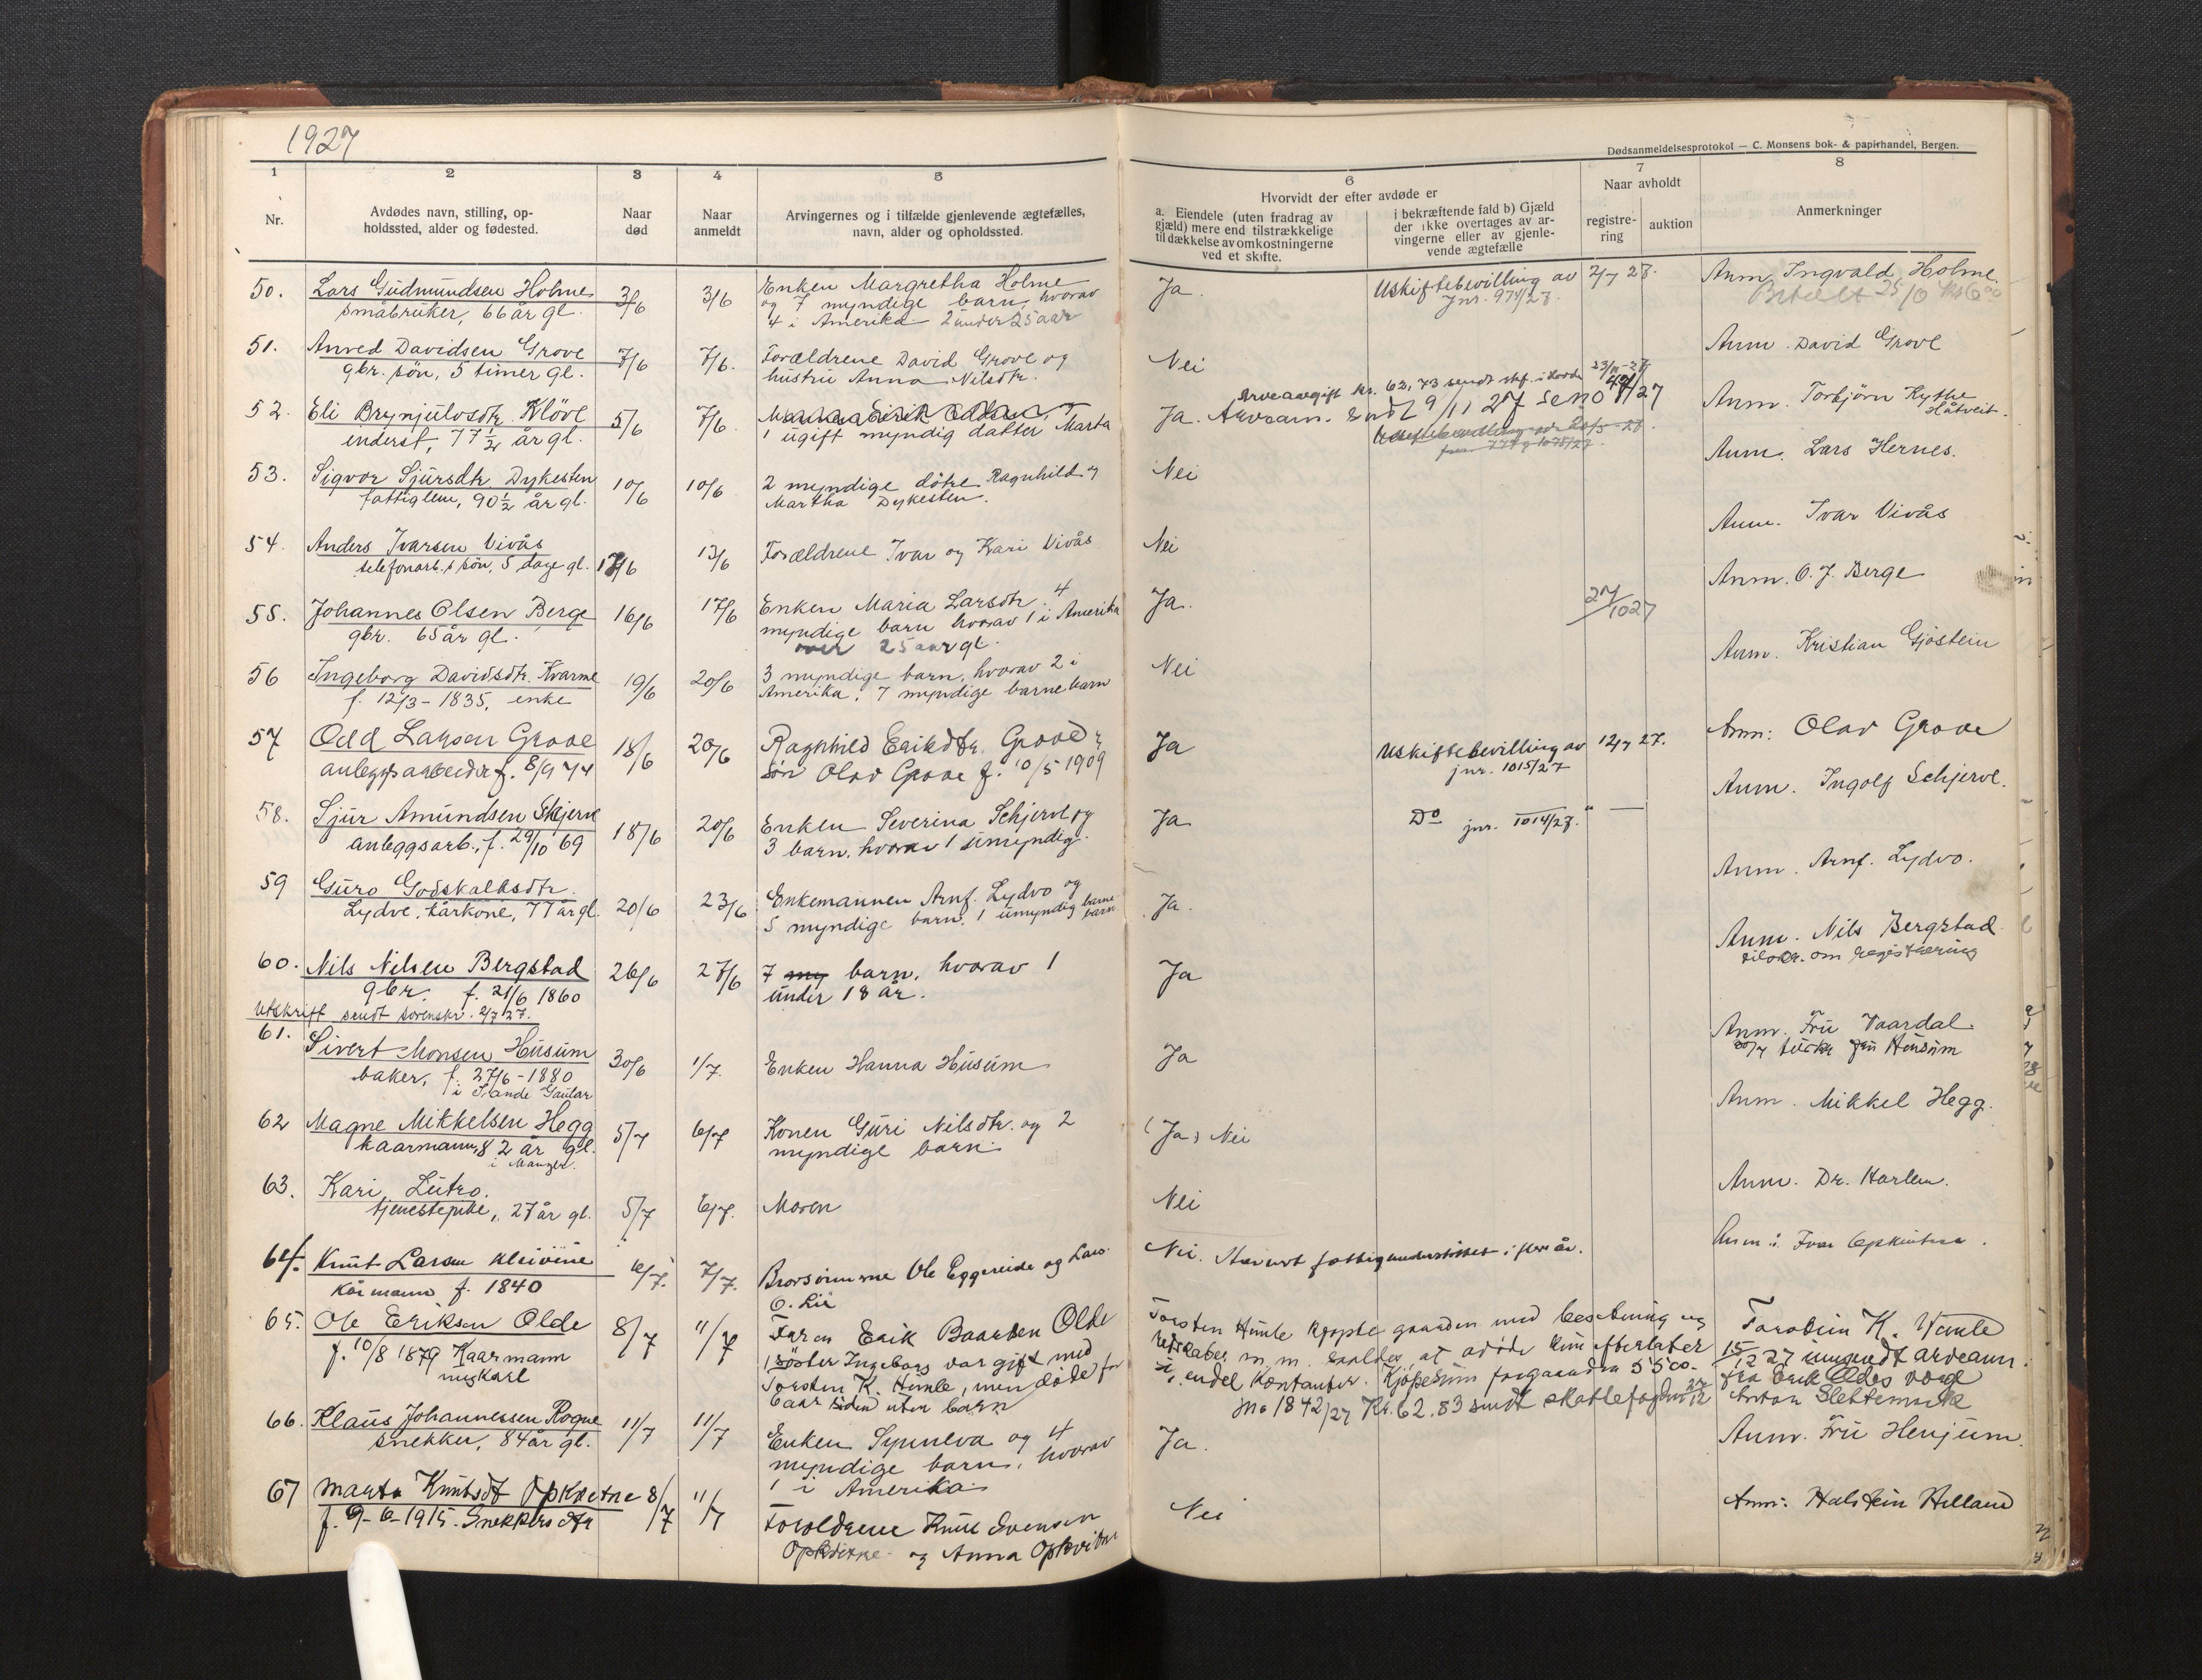 1927
Dødsanmeldelsesprotokol — C. Monsens bok- & papirhandel, Bergen.
1
Nr.
2
Avdødes navn, stilling, op-
holdssted, alder og fødested.
3
Naar
død
4
Naar
anmeldt
5
Arvingernes og i tilfælde gjenlevende ægtefælles,
navn, alder og opholdssted.
6
Hvorvidt der efter avdøde er
a. Eiendele (uten fradrag av
gjæld) mere end tilstrækkelige
til dækkelse av omkostningerne
ved et skifte.
i bekræftende fald b) Gjæld
der ikke overtages av ar-
vingerne eller av gjenle-
vende ægtefælle
7
Naar avholdt
registre-
ring
auktion
8
Anmerkninger
50. Lars Gudmundsen Holme
småbruker, 66 år gl.
3/6
3/6
Enken Margretha Holme
og 7 myndige barn, hvorav
4 i Amerika 2 under 25 aar
Ja
Uskiftebevilling av 2/7 27.
Jnr. 974/27.
Anm. Ingvald Holme.
Betalt 25/10
51. Anved Davidsen Grove
gbr. søn, 5 timer gl.
7/6
7/6.
Forældrene David Grove og
hustru Anna Nilsdtr.
Nei
Anm. David Grove
52. Eli Brynjulvsdtr. Kløve
inderst, 77 1/2 år gl.
5/6
7/6.
1 ugift myndig datter Marta
Arveavgift kr. 62,73 sendt
23/11-27
Ja. Arveanm. sendt 9/11 27
Anm. Torbjørn Kythe
Håtveit.
53. Sigvor Sjursdtr. Dykesten
fattiglem, 90 1/2 år gl.
10/6
10/6
2 myndige døtre Ragnhild og
Martha Dykesten.
Nei
Anm. Lars Hernes.
54. Anders Ivarsen Vivås
telefonarb.s søn, 5 dage gl.
13/6
Forældrene Ivar og Kari Vivås
Nei
Anm. Ivar Vivås
55. Johannes Olsen Berge
gbr. 65 år gl.
16/6
17/6
Enken Maria Larsdtr. 4
myndige barn hvorav 1 i Amerika
over 25 aar gl.
Ja.
27/10 27
Anm. O. J. Berge
56 Ingeborg Davidsdtr. Kvarme
f. 12/3-1835, enke
19/6
20/6
3 myndige barn, hvorav 2 i
Amerika, 7 myndige barnebarn
Nei
Anm. Kristian Gjøstein
57 Odd Larsen Grove
anleggsarbeider f. 8/9 74
18/6
20/6
Ragnhild Eriksdtr. Grove &
søn Olav Grove f. 10/5 1909
Ja
Uskiftebevilling av 12/7 27.
jnr. 1015/27
Anm: Olav Grove
58. Sjur Amundsen Skjerve
anleggsarb., f. 29/10 69
18/6
20/6
Enken Severina Schjerve og
3 barn, hvorav 1 umyndig.
Ja
Do jnr. 1014/27. " —
Anm. Ingolf Schjerve.
59 Guro Godskalksdtr.
Lydve, kårkone, 77 år gl.
20/6
23/6
Enkemannen Arnf. Lydvo og
5 myndige barn, 1 umyndig barne
barn
Ja.
Anm. Arnf. Lydvo.
60. Nils Nilsen Bergstad
gbr. f. 21/6 1860
26/6
27/6
7 my barn, hvorav 1
under 18 år.
Ja
Anm. Nils Bergstad
om registrering
Utskrift sendt sorenskr. 2/7 27.
61. Sivert Monsen Husum
baker, f. 27/6-1880
i Sande Gaular
30/6
1/7.
Enken Hanna Husum
Ja
Anm. Fru Vaardal
62 Magne Mikkelsen Hegg
kaarmann, 82 år gl.
i Manger.
5/7
6/7
Konen Guri Nilsdtr. og 2
myndige barn.
(Ja) Nei
Anm. Mikkel Hegg.
63. Kari Lutro.
tjenestepike, 27 år gl.
5/7
6/7.
Moren
Nei
Anm. Dr. Harlem.
64. Knut Larsen Kleivene
Kårmann f. 1840
6/7.
7/7.
Brorsønnerne Ole Eggereide og Lars
O. Lie
Nei. fattigunderstøttet i flere år.
Anm.: Ivar Opkvitne.
65. Ole Eriksen Olde
f. 10/8 1879 Kaarmann
ungkarl
8/7
11/7
Faren Erik Baardsen Olde
1 søster Ingeborg var gift med
Torsten K. Himle, men døde for
6 aar siden uten barn
Torsten Himle kjøpte gaarden med besetning og
redskaper m. m. av avdøde kun efterlater
endel kontanter. Kjøpesum for gaarden 5500.-
Jno 1842/27 Kr. 62.83 sendt skattefogden
Torstein K. Himle
15/12 27 innsendt arveanm.
fra Erik Oldes verge
66. Klaus Johannessen Rogne
snekker, 84 år gl.
11/7
11/7
Enken Synneva og 4
myndige barn, hvorav
1 i Amerika
Ja.
Anm. Fru Henjum.
67 Marta Knutsdt Opkvitne
f. 9-6-1915. Snekkers dtr
8/7
11/7
Foreldrene Knut Svensen
Opkvitne og Anna Opkvitne
Nei
Anm: Halstein Helland